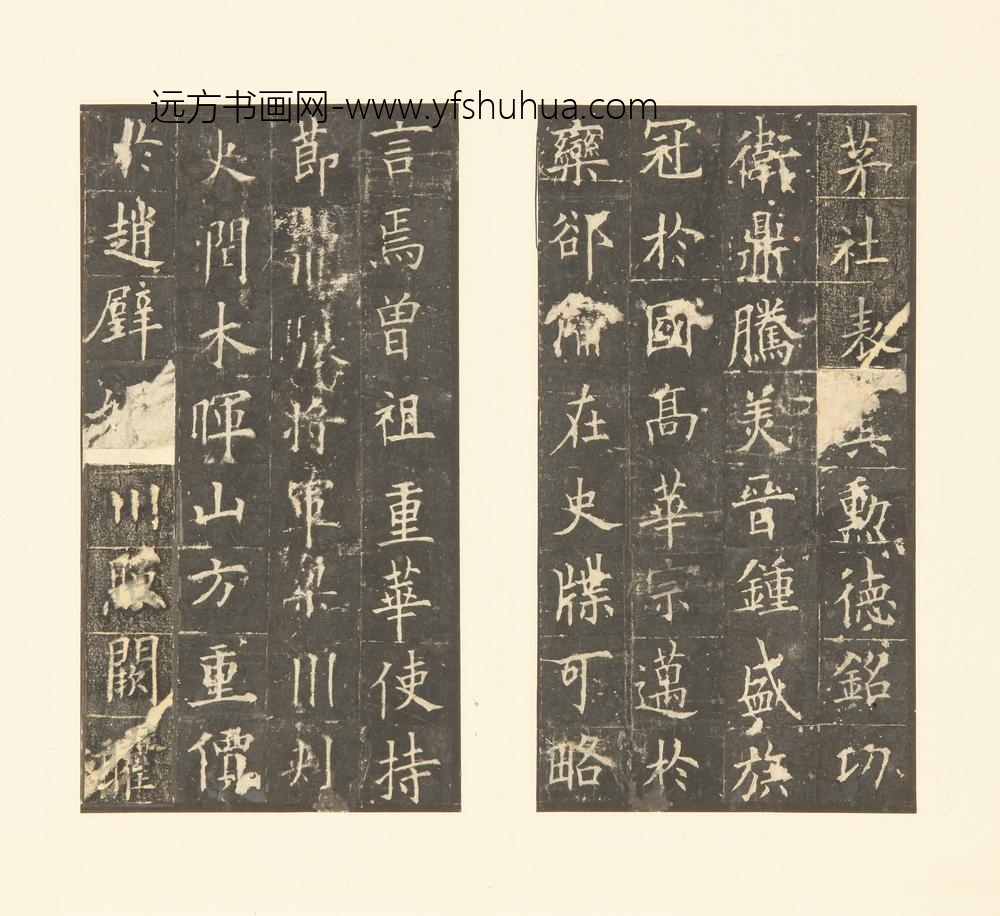 远方书画网-www.yfshuhua.com
茅社表其勲德銘功
衛鼎騰美晉鍾盛族
冠於國高華宗邁於
欒郤備在史牒可略
言焉曾祖重華使持
節龍驤將軍梁州刾
史閏木暉山方重價
於趙璧 川照闕曜